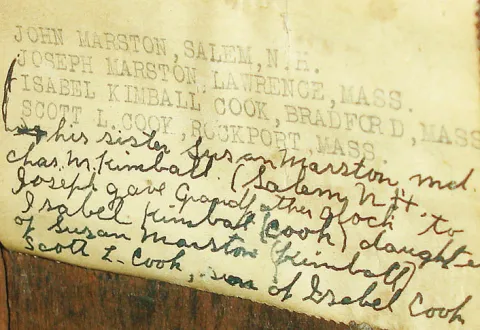 JOHN MARSTON, SALEM, N.H.
JOSEPH MARSTON, LAWRENCE, MASS.
ISABEL KIMBALL COOK, BRADFORD, MASS
SCOTT L. COOK, ROCKPORT, MASS.
his sister Susan Marston, md.
Chas. M. Kimball. (Salem, N.H.
Joseph gave Grandfather Clock to
Isabel Kimball (Cook) daughte
of Susan Marston (Kimball)
Scott L. Cook, son of Isabel Cook